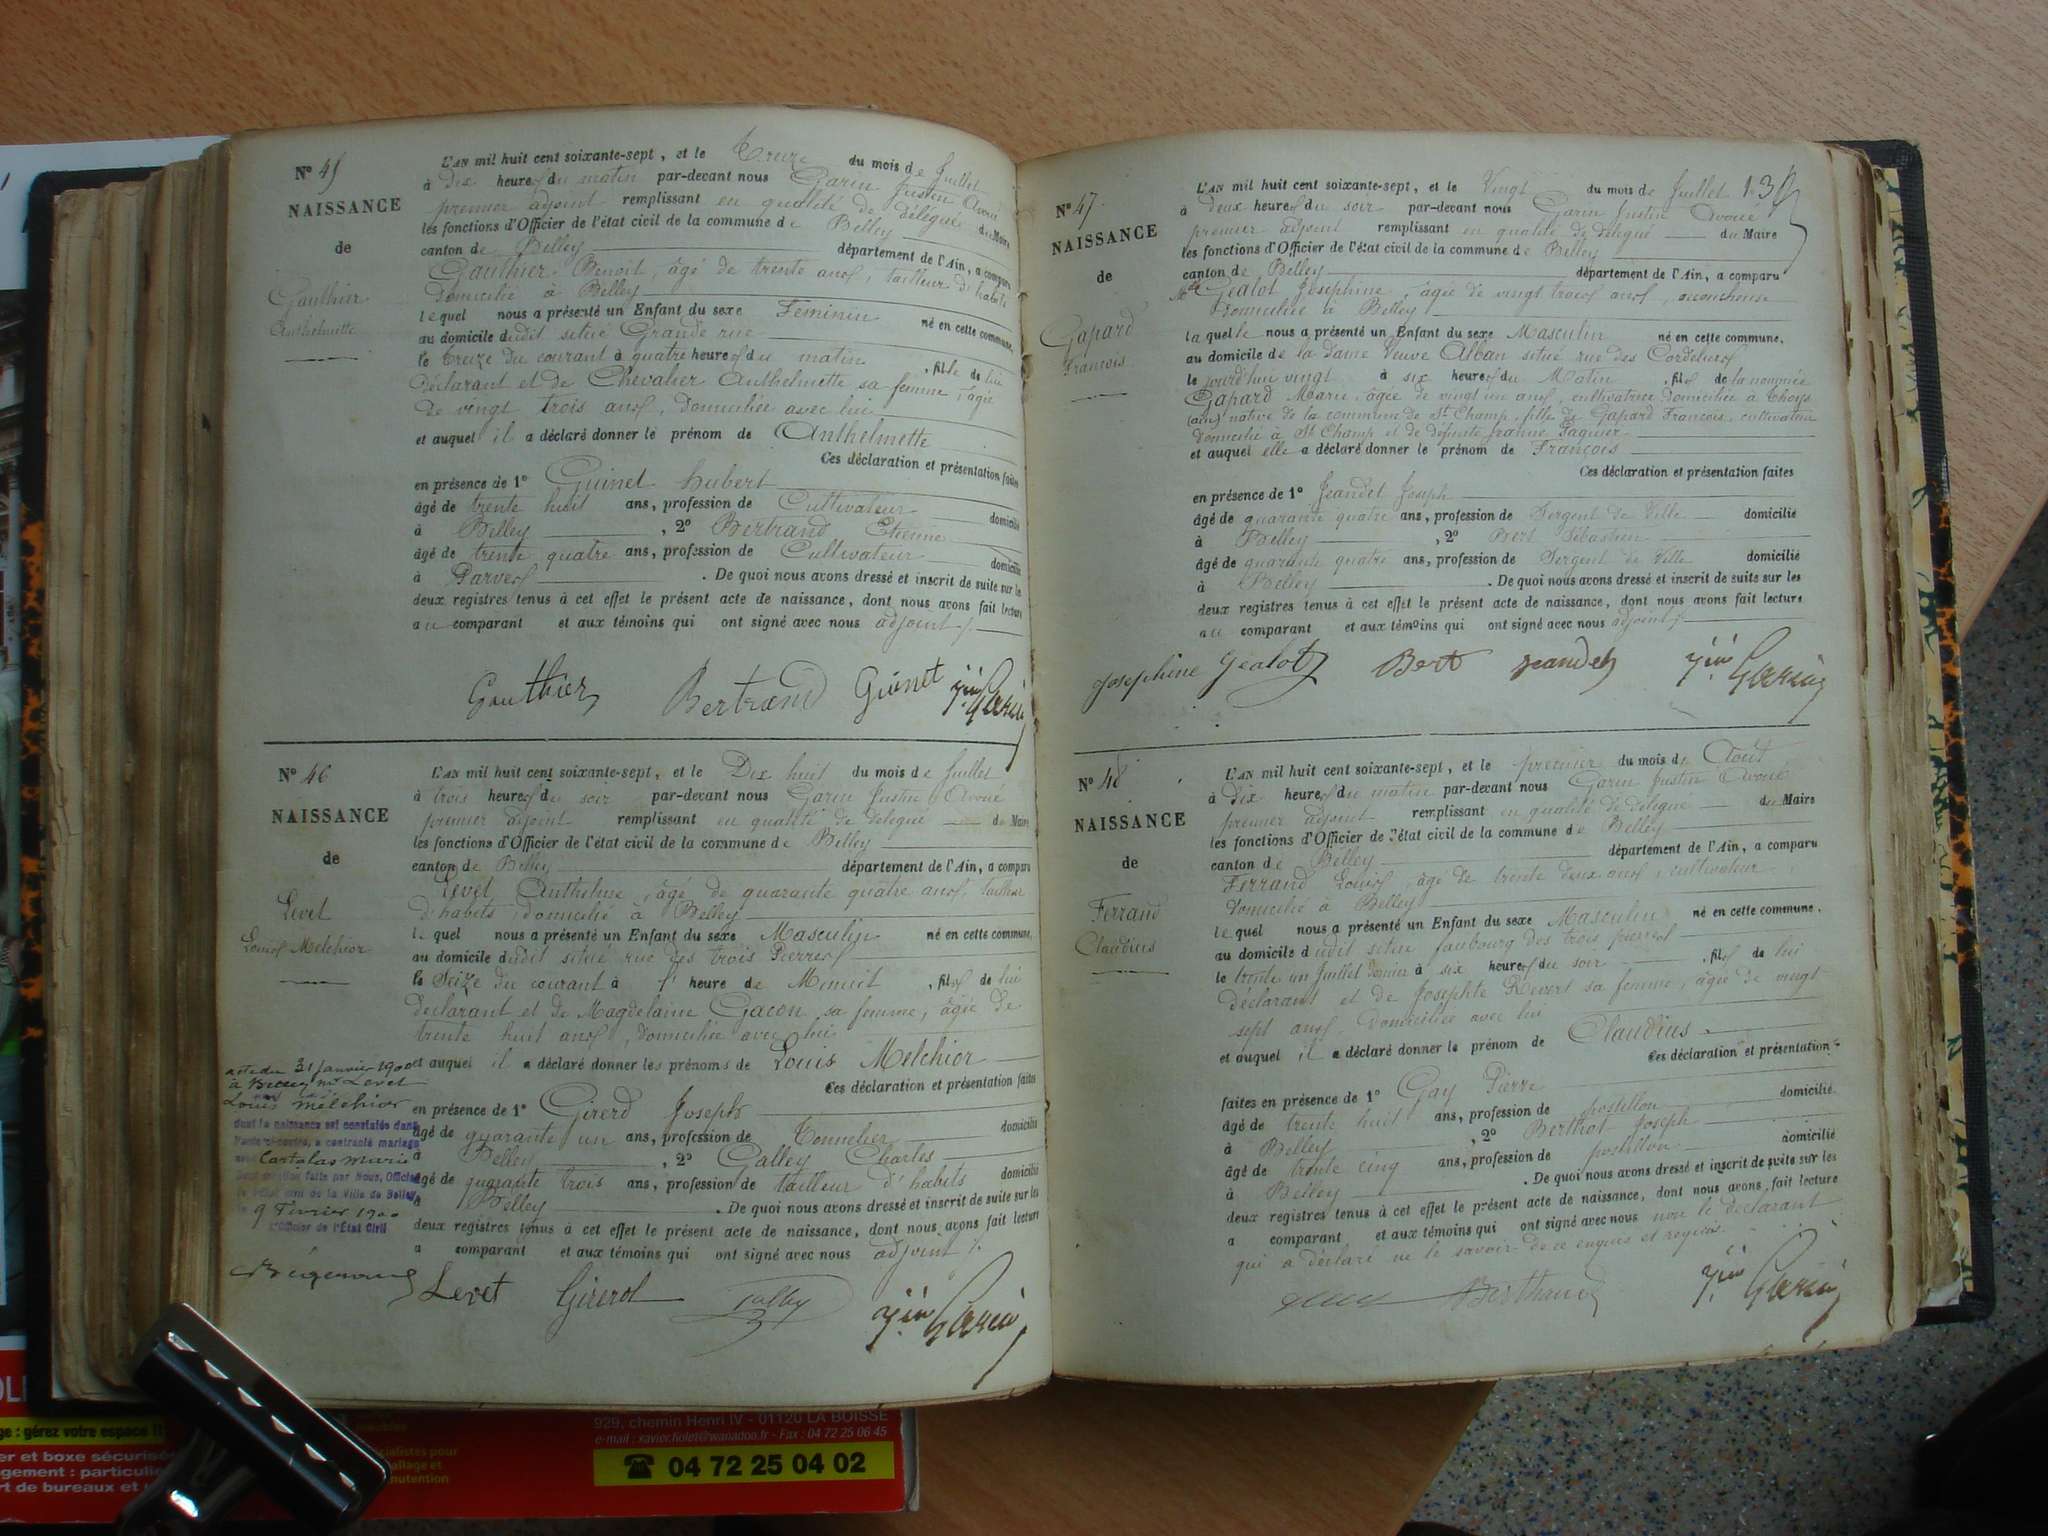 Nº 45
NAISSANCE
de
Gauthier
Anthelmette
L'AN mil huit cent soixante-sept, et le Treize du mois de Juillet
à dix heures du matin par-devant nous Garin Justin Avoué
premier adjoint remplissant en qualité de délégué du Maire
les fonctions d'Officier de l'état civil de la commune de Belley
canton de Belley département de l'Ain, a comparu
Gauthier Benoit, âgé de trente ans, tailleur d'habits
domicilié à Belley
lequel nous a présenté un Enfant du sexe Féminin né en cette commune,
au domicile dudit situé Grande rue
le treize du courant à quatre heures du matin, fille de lui
déclarant et de Chevalier Anthelmette sa femme, âgée
de vingt trois ans, domiciliée avec lui
et auquel il a déclaré donner le prénom de Anthelmette
Ces déclaration et présentation faites
en présence de 1º Guinet hubert
âgé de trente huit ans, profession de Cultivateur domicilié
à Belley, 2º Bertrand Etienne
âgé de trente quatre ans, profession de Cultivateur domicilié
à Parves. De quoi nous avons dressé et inscrit de suite sur les
deux registres tenus à cet effet le présent acte de naissance, dont nous avons fait lecture
au comparant et aux témoins qui ont signé avec nous adjoint
Gauthier Bertrand Guinet Jin Garin
Nº 46
NAISSANCE
de
Levet
Louis Melchior
L'AN mil huit cent soixante-sept, et le Dix huit du mois de Juillet
à trois heures du soir par-devant nous Garin Justin Avoué
premier adjoint remplissant en qualité de délégué du Maire
les fonctions d'Officier de l'état civil de la commune de Belley
canton de Belley département de l'Ain, a comparu
Levet Anthelme, âgé de quarante quatre ans, tailleur
d'habits, domicilié à Belley
lequel nous a présenté un Enfant du sexe Masculin né en cette commune,
au domicile dudit situé rue des trois Pierres
le Seize du courant à l' heure de Minuit, fils de lui
déclarant et de Magdelaine Gacon sa femme, âgée de
trente huit ans, domiciliée avec lui
et auquel il a déclaré donner les prénoms de Louis Melchior
Ces déclaration et présentation faites
en présence de 1º Girerd Joseph
âgé de quarante un ans, profession de Tonnelier domicilié
à Belley, 2º Galley Charles
âgé de quarante trois ans, profession de tailleur d'habits domicilié
à Belley. De quoi nous avons dressé et inscrit de suite sur les
deux registres tenus à cet effet le présent acte de naissance, dont nous avons fait lecture
a comparant et aux témoins qui ont signé avec nous adjoint
acte du 31 Janvier 1900
à mr Levet
Louis Melchior
dont la naissance est constatée dans
l'acte ci-contre, a contracté mariage
avec Cartalas Marie
faite par Nous, Officier
de l'état civil de la Ville de Belley
le 9 Février 1900
L'Officier de l'État Civil
Levet Girerd Galley Jin Garin
130
Nº 47
NAISSANCE
de
Gapard
François
L'AN mil huit cent soixante-sept, et le Vingt du mois de Juillet
à deux heures du soir par-devant nous Garin Justin Avoué
premier adjoint remplissant en qualité de délégué du Maire
les fonctions d'Officier de l'état civil de la commune de Belley
canton de Belley département de l'Ain, a comparu
Mlle Gealot Joséphine, âgée de vingt trois ans, accoucheuse
domiciliée à Belley
laquelle nous a présenté un Enfant du sexe Masculin né en cette commune,
au domicile de la Dame Veuve Alban situé rue des Cordeliers
le jourd'hui vingt à six heures du Matin, fils de la nommée
Gapard Marie, âgée de vingt un ans, cultivatrice domiciliée à Thoys
(ain) native de la commune de St Champ, fille de Gapard François, cultivateur
domicilié à St Champ et de défunte Jeanne Paguier
et auquel elle a déclaré donner le prénom de François
Ces déclaration et présentation faites
en présence de 1º Jeandet Joseph
âgé de quarante quatre ans, profession de Sergent de Ville domicilié
à Belley, 2º Bert Sébastien
âgé de quarante quatre ans, profession de Sergent de Ville domicilié
à Belley. De quoi nous avons dressé et inscrit de suite sur les
deux registres tenus à cet effet le présent acte de naissance, dont nous avons fait lecture
au comparant et aux témoins qui ont signé avec nous adjoint
Josephine Gealot Bert Jeandet Jin Garin
Nº 48
NAISSANCE
de
Ferrand
Claudius
L'AN mil huit cent soixante-sept, et le premier du mois de Août
à dix heures du matin par-devant nous Garin Justin Avoué
premier adjoint remplissant en qualité de délégué du Maire
les fonctions d'Officier de l'état civil de la commune de Belley
canton de Belley département de l'Ain, a comparu
Ferrand Louis, âgé de trente deux ans, cultivateur
domicilié à Belley
lequel nous a présenté un Enfant du sexe Masculin né en cette commune,
au domicile dudit situé faubourg des trois pierres
le trente un Juillet dernier à six heures du soir, fils de lui
déclarant et de Josephte Revert sa femme, âgée de vingt
sept ans, domiciliée avec lui
et auquel il a déclaré donner le prénom de Claudius
Ces déclaration et présentation
faites en présence de 1º Gay Pierre
âgé de trente huit ans, profession de postillon domicilié
à Belley, 2º Berthot Joseph
âgé de trente cinq ans, profession de postillon domicilié
à Belley. De quoi nous avons dressé et inscrit de suite sur les
deux registres tenus à cet effet le présent acte de naissance, dont nous avons fait lecture
a comparant et aux témoins qui ont signé avec nous non le déclarant
qui a déclaré ne le savoir de ce enquis et requis
Jin Garin
929, chemin Henri IV - 01120 LA BOISSE
e-mail : xavier.holet@wanadoo.fr - Fax : 04 72 25 06 45
☎ 04 72 25 04 02
ge : gérez votre espace !!
er et boxe sécurisé
gement : particulie
rt de bureaux et
cialistes pour
allage et
nutention